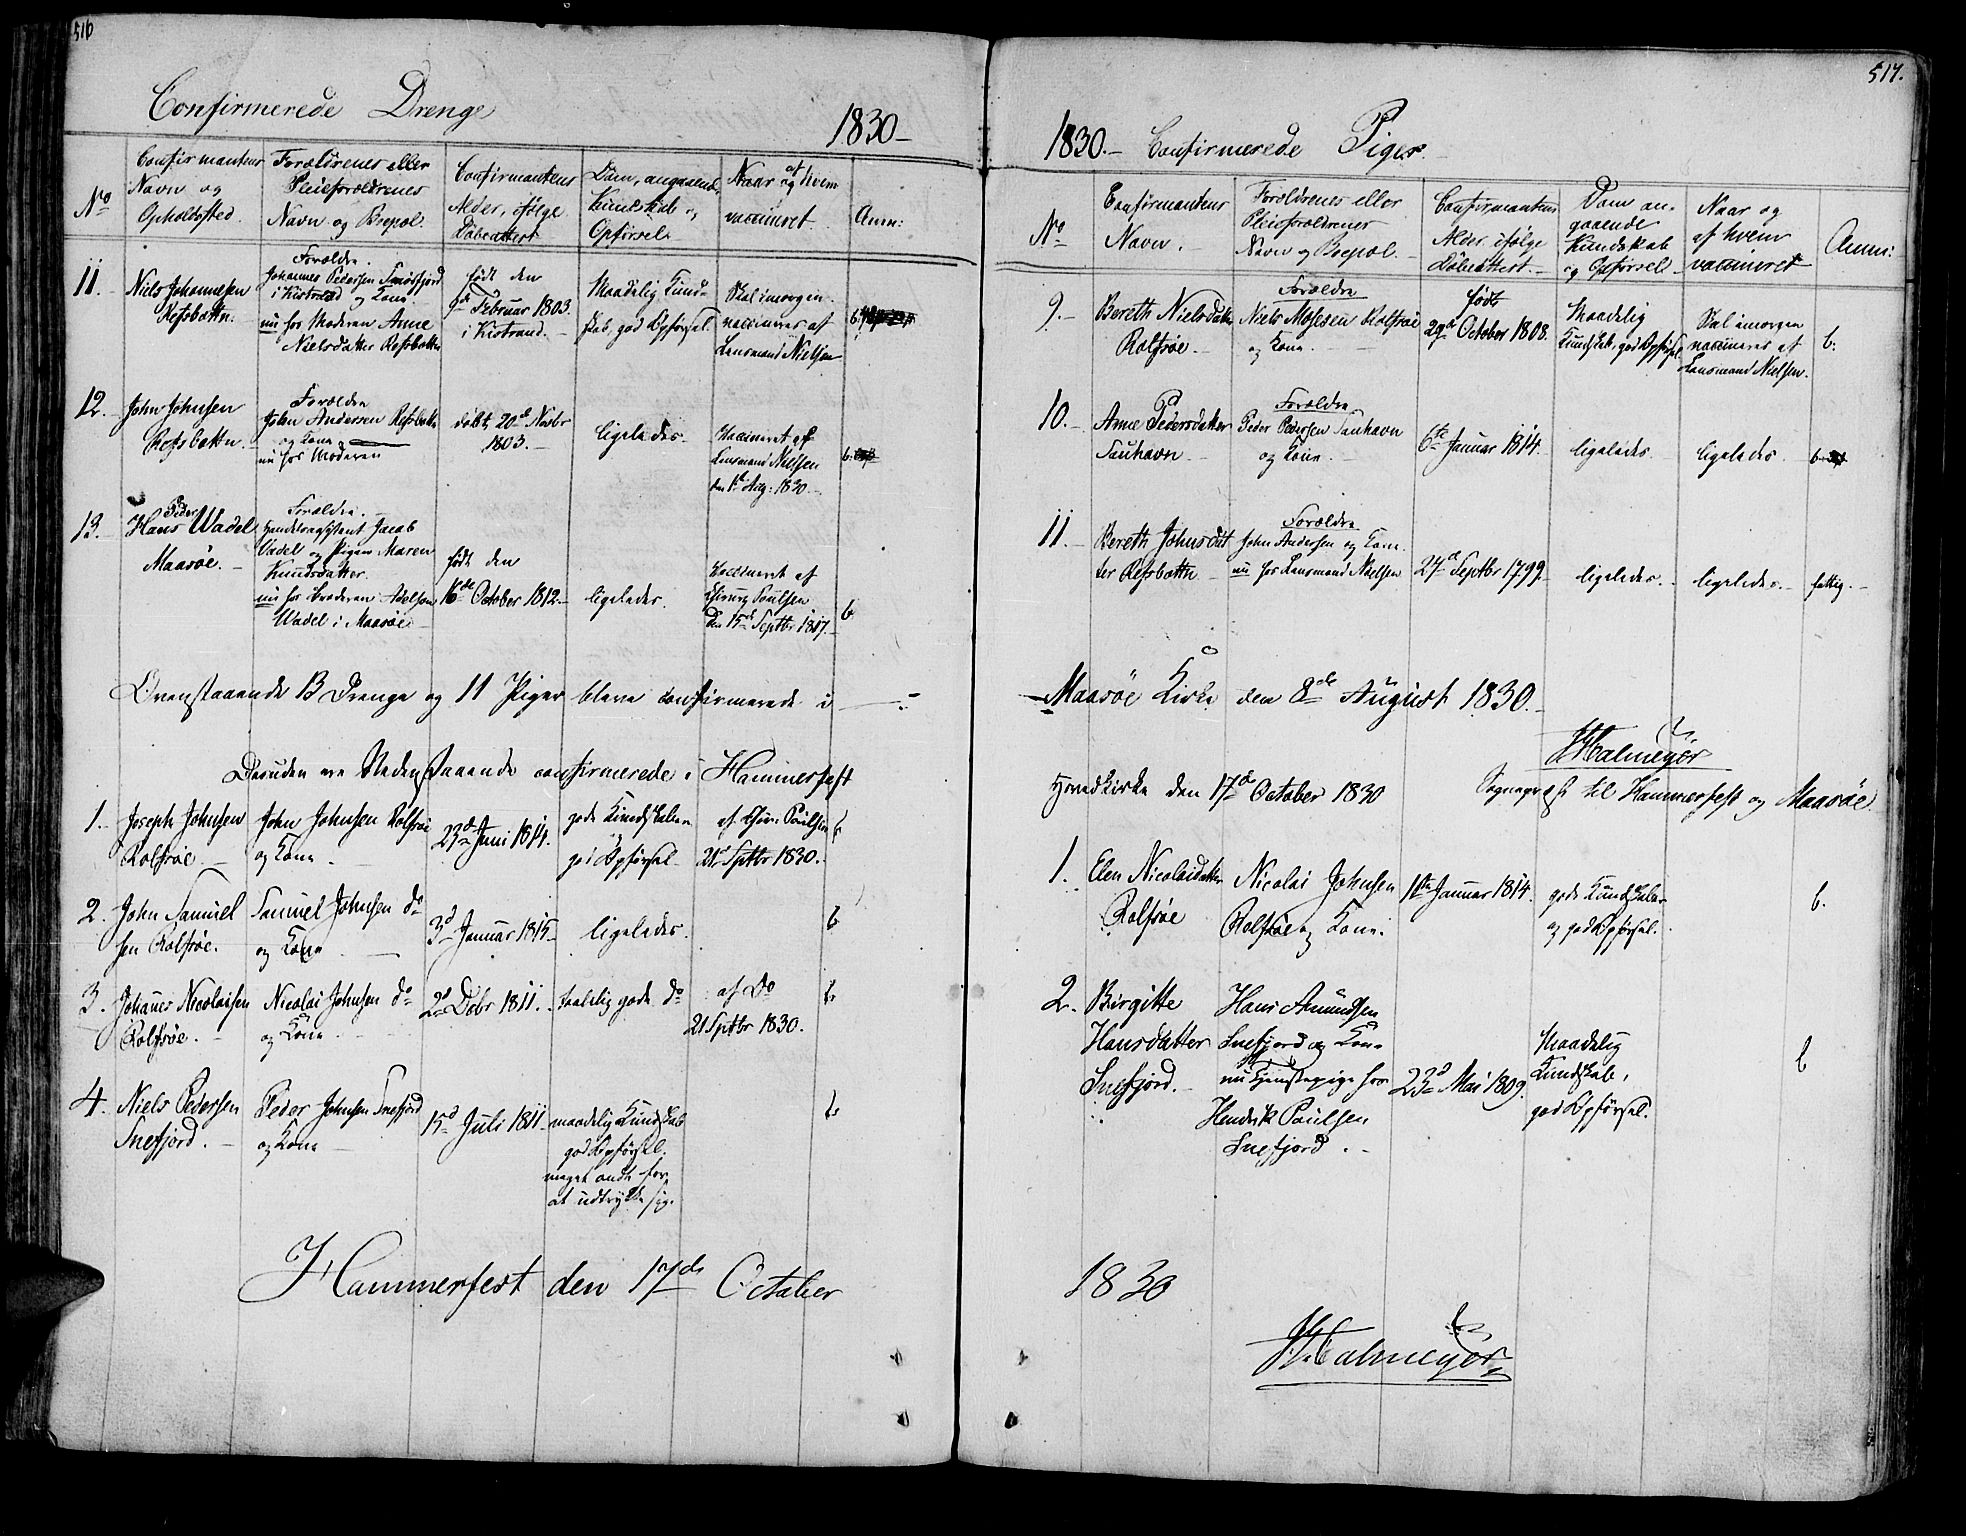 516
Confirmerede Drenge 1830.
No
Confirmantens Navn og Opholdssted.
Forældrenes eller Pleieforældrenes Navn og Bopæl.
Confirmantens Alder, ifølge Døbeattest
Dom, angaaende Kundskab og Opførsel.
Naar og af hvem vaccineret.
Anm:
11.
Niels Johannesen
Refsbottn.
Forældre.
Johannes Pedersen Smørfjord
i Kistrand og Kone
nu hos Moderen Anne
Nielsdatter Refsbottn
født den
9de Februar 1803.
i Kistrand.
Maadelig Kund-
skab, god Opførsel.
Skal imorgen
vaccineres af
Lensmand Nielsen
b.
12.
John Johnsen
Refsbottn.
Forældre
John Andersen Refsbottn
og Kone
nu hos Moderen
døbt 20de Novbr
1803.
ligeledes.
Vaccineret af
Lensmand Nielsen
den 1ste Aug: 1830.
b.
13.
Hans Peder Wadel
Maasöe.
Forældre.
Handelsassistent Jacob
Wadel og Pigen Maren
Knudsdatter.
nu hos Broderen Adelsen
Wadel i Maasöe
født den
16de October 1812.
ligeledes.
Vaccineret af
Chirurg Poulsen
den 15de Septbr 1817.
b.
Ovenstaaende 13 Drenge og 11 Piger bleve confirmerede i
Desuden ere Nedenstaaende confirmerede i Hammerfest
1.
Joseph Johnsen
Rolfsöe.
John Johnsen Rolfsöe
og Kone.
23de Juni 1814.
gode Kundskaber
god Opførsel
af Chir: Poulsen
21de Septbr 1830.
b.
2.
John Samuel
sen Rolfsöe.
Samuel Johnsen do
og Kone
3de Januar 1815.
ligeledes.
b
3.
Johannes Nicolaisen
Rolfsöe.
Nicolai Johnsen do
og Kone
2de Debr 1811.
taalelig gode do
af Do
21 Sptbr 1830.
b.
4.
Niels Pedersen
Snefjord.
Peder Johnsen Snefjord
og Kone
15de Juli 1811.
maadelig Kundskab
god Opførsel.
meget ondt for
at udtrykke sig.
b.
Hammerfest den 17de October
517.
1830. Confirmerede Piger.
No
Confirmantens Navn.
Forældrenes eller Pleieforældrenes Navn og Bopæl.
Confirmantens Alder, ifølge Døbeattest.
Dom angaaende Kundskab og Opførsel
Naar og af hvem vaccineret
Anm:
9.
Bereth Nielsdatter
Rolfsöe.
Forældre
Niels Mosesen Rolfsöe
og Kone.
født
29de October 1808.
Maadelig
Kundskab, god Opførsel
Skal imorgen
vaccineres af
Lensmand Nielsen.
b.
10.
Anne Pedersdatter
Sauhavn
Forældre
Peder Pedersen Sauhavn
og Kone.
6te Januar 1814.
ligeledes.
ligeledes.
b.
11.
Bereth Johnsdat
ter Refsbottn
Forældre
John Andersen og Kone.
nu hos Lensmand Nielsen
27de Septbr 1799.
ligeledes.
ligeledes.
fattig.
Maasöe Kirke den 8de August 1830.
Halmeyer
Sognepræst til Hammerfest og Maasöe.
Hovedkirke den 17de October 1830
1.
Elen Nicolaidatter
Rolfsöe
Nicolai Johnsen
Rolfsöe og Kone.
1ste Januar 1814.
gode Kundskaber
og god Opførsel.
b.
2.
Birgitte
Hansdatter
Snefjord.
Hans Amundsen
Snefjord og Kone
nu Tjenstepige hos
Henderik Poulsen
Snefjord.
23de Mai 1809.
Maadelig
Kundskab,
god Opførsel.
b
1830
Halmeyer